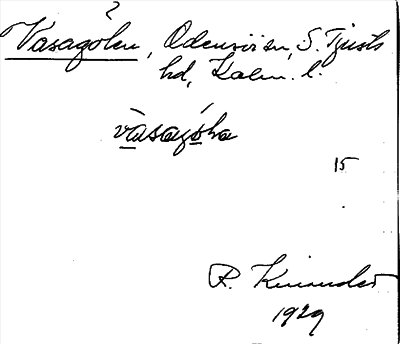 ?
Vasagölen, Odensvi sn, S. Tjusts
hd, Kalm. l.
vàsagóḷa
15
R. Kinander
1929